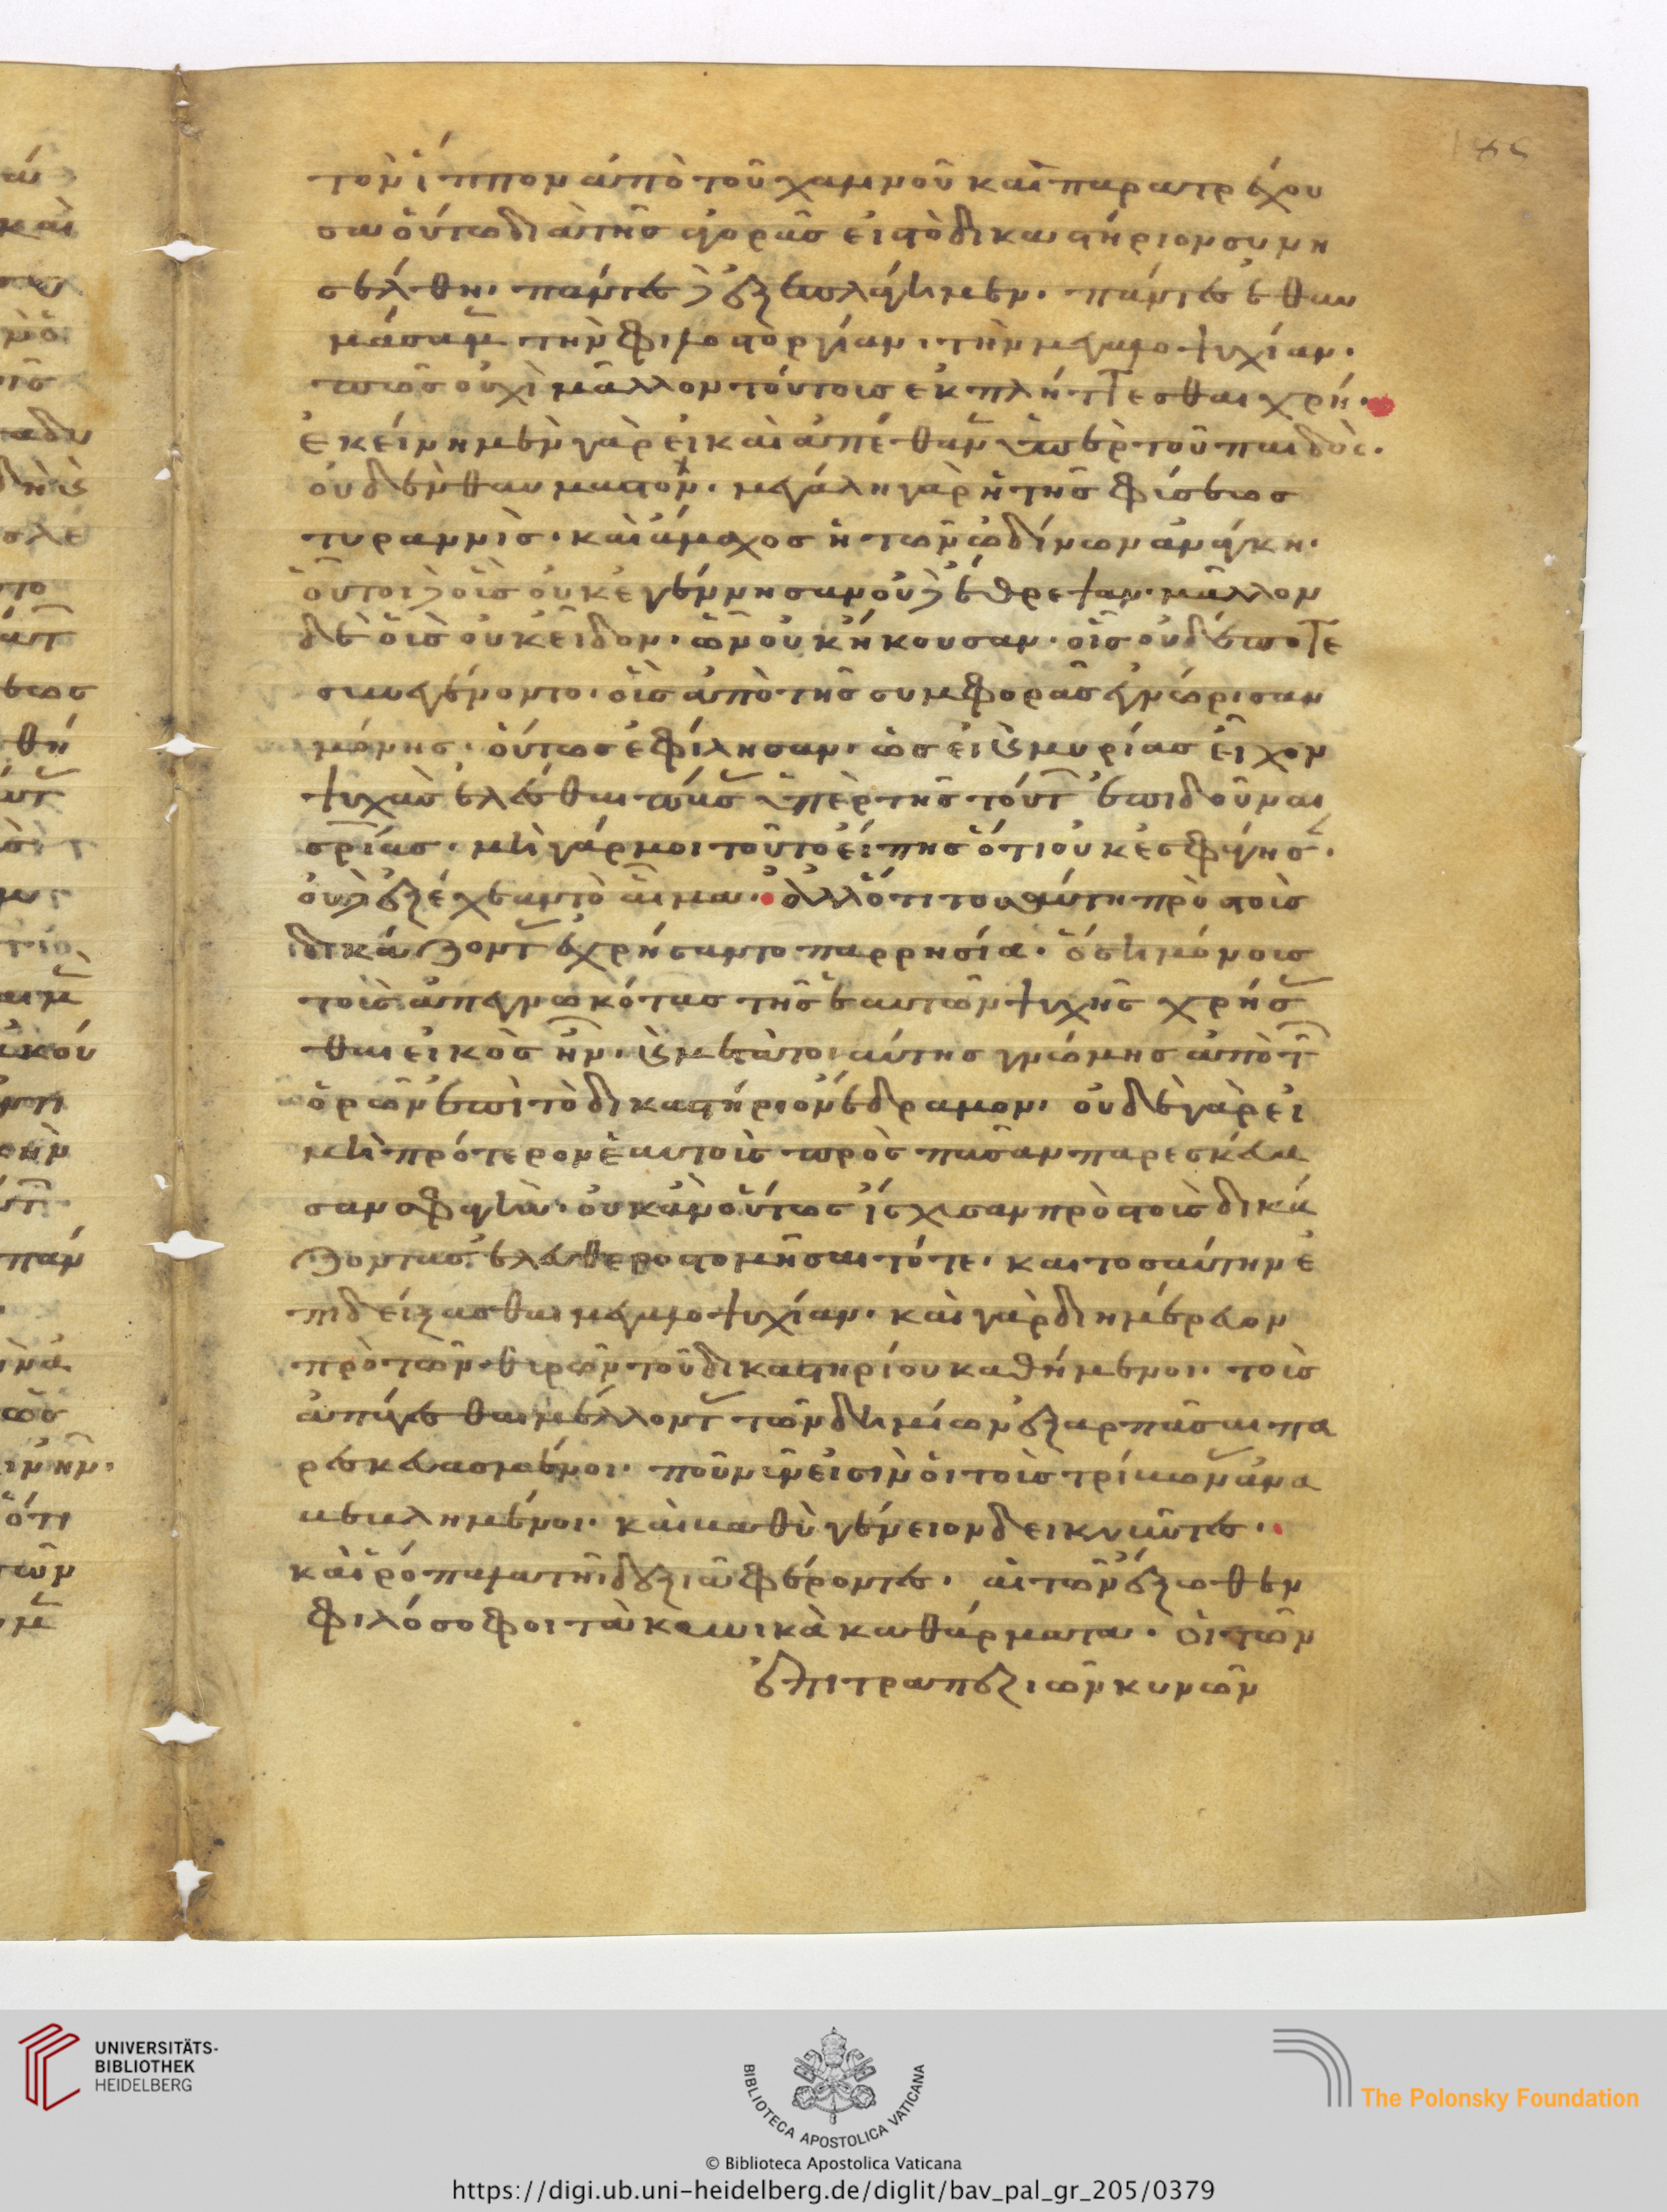 τὸν ἵππον ἀπὸ τοῦ χαμμοῦ καὶ παρατρέχου
σαν οὕτω διὰ τῆς ἀγορᾶς εἰς τὸ δικαστήριον συνη
σέλθη. πάντες ἐξεπλάγημεν. πάντες ἐθαυ
μάσαμεν τὴν φιλοστοργίαν. τὴν μεγαλοψυχίαν.
πῶς οὐχὶ μᾶλλον τούτοις ἐκπλήττεσθαι χρή.
ἐκείνη μὲν γὰρ εἰ καὶ ἀπέθανεν ὑπὲρ τοῦ παιδὸς.
οὐδὲν θαυμαστον. μεγάλη γὰρ ἡ τῆς φύσεως
τυραννὶς. καὶ ἄμαχος ἡ τῶν ὠδίνων ἀνάγκη.
οὗτοι δὲ οἷς οὐκ ἐγέννησαν οὐδὲ ἔθρεψαν. μᾶλλον
δὲ οἷς οὐκ εἶδον. ὧν οὐκ ἤκουσαν. οἷς οὐδέποτε
συνεγένοντο. οἷς ἀπὸ τῆς συμφορᾶς ἐγνώρισαν
μόνης. οὕτως ἐφίλησαν. ὡς εἰ καὶ μυρίας εἶχον
ψυχὰς ἑλέσθαι πάσας ὑπὲρ τῆς τούτων ἐπιδοῦναι
σρίας. μὴ γάρ μοι τοῦτο εἴπης ὅτι οὐκ ἐσφάγησαν.
οὐδὲ ἐξέχεαν τὸ αἷμα. ἀλλ' ὅτι τοσαύτη πρὸς τοὺς
δικάζοντας ἐχρήσαντο παρρησία. ὅση μόνοις
τοῖς ἀπεγνωκότας τῆς ἑαυτῶν ψυχῆς χρήσα
θαι εἰκὸς ἦν. καὶ μετὰ τοιαύτης γνώμης ἀπὸ τῶν
ὀρῶν ἐπὶ τὸ δικαστήριον ἔδραμον. οὐδὲ γὰρ εἰ
μὴ πρότερον ἑαυτοὺς πρὸς πᾶσαν παρεσκεύα
σαν σφαγὴν. οὐκ ἂν οὕτως ἴσχυσαν πρὸς τοὺς δικά
ζοντας ἐλευθεροστομῆσαι τότε. καὶ τοσαύτην ἐ
πιδείξασθαι μεγαλοψυχίαν. καὶ γὰρ διημέρευον
πρὸ τῶν θυρῶν τοῦ δικαστηρίου καθήμενοι. τοὺς
ἀπάγεσθαι μέλλοντας τῶν δημίων ἐξαρπᾶσαι πα
ρεσκευασμένοι. ποῦ νῦν εἰσὶν οἱ τοὺς τρίβωνας ἀνα
βεβλημένοι. καὶ βαθὺ γένειον δεικνύντες.
καὶ ῥόπαλα τῆ δεξιᾶ φέροντες. οἱ τῶν ἔξωθεν
φιλόσοφοι τὰ κυνικὰ καθάρματα. οἱ τῶν
ἐπιτραπεζιῶν κυνῶν
UNIVERSITÄTS-
BIBLIOTHEK
HEIDELBERG
BIBLIOTECA APOSTOLICA VATICANA
The Polonsky Foundation
© Biblioteca Apostolica Vaticana
https://digi.ub.uni-heidelberg.de/diglit/bav_pal_gr_205/0379